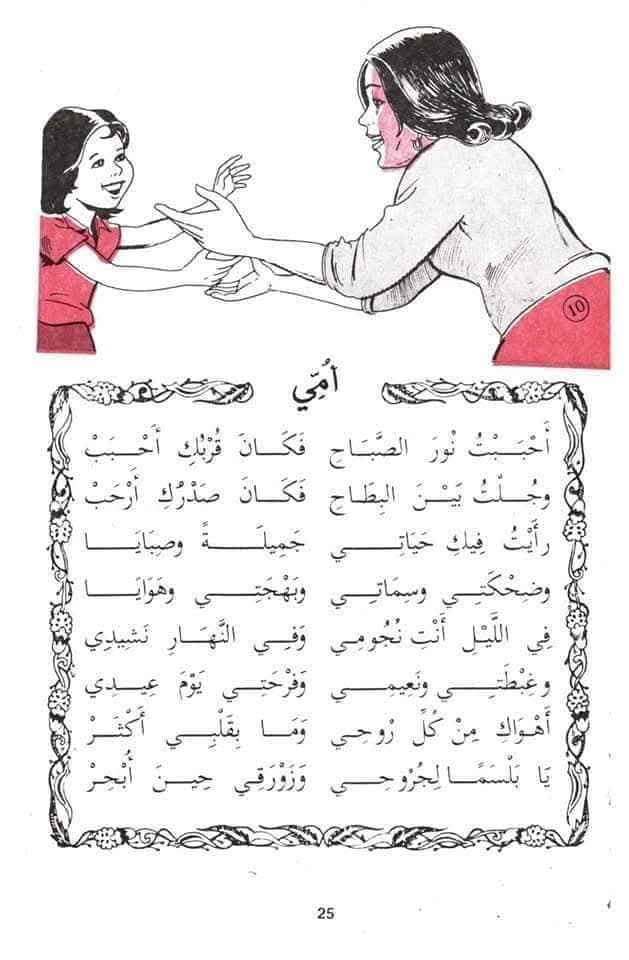 10
أُمِّي
أَحْبَبْتُ نُورَ الصَّبَاحِ فَكَانَ قُرْبُكِ أَحْبَبْ
وجُلْتُ بَيْنَ البِطَاحِ فَكَانَ صَدْرُكِ أَرْحَبْ
رأَيْتُ فِيكِ حَيَاتِي جَمِيلَةً وصِبَايَا
وضِحْكَتِي وسِمَاتِي وبَهْجَتِي وهَوَايَا
فِي اللَّيْلِ أَنْتِ نُجُومِي وَفِي النَّهَارِ نَشِيدِي
وغِبْطَتِي ونَعِيمِي وَفَرْحَتِي يَوْمَ عِيدِي
أَهْوَاكِ مِنْ كُلِّ رُوحِي وَمَا بِقَلْبِي أَكْثَرْ
يَا بَلْسَمًا لِجُرُوحِي وَزَوْرَقِي حِينَ أُبْحِرْ
25